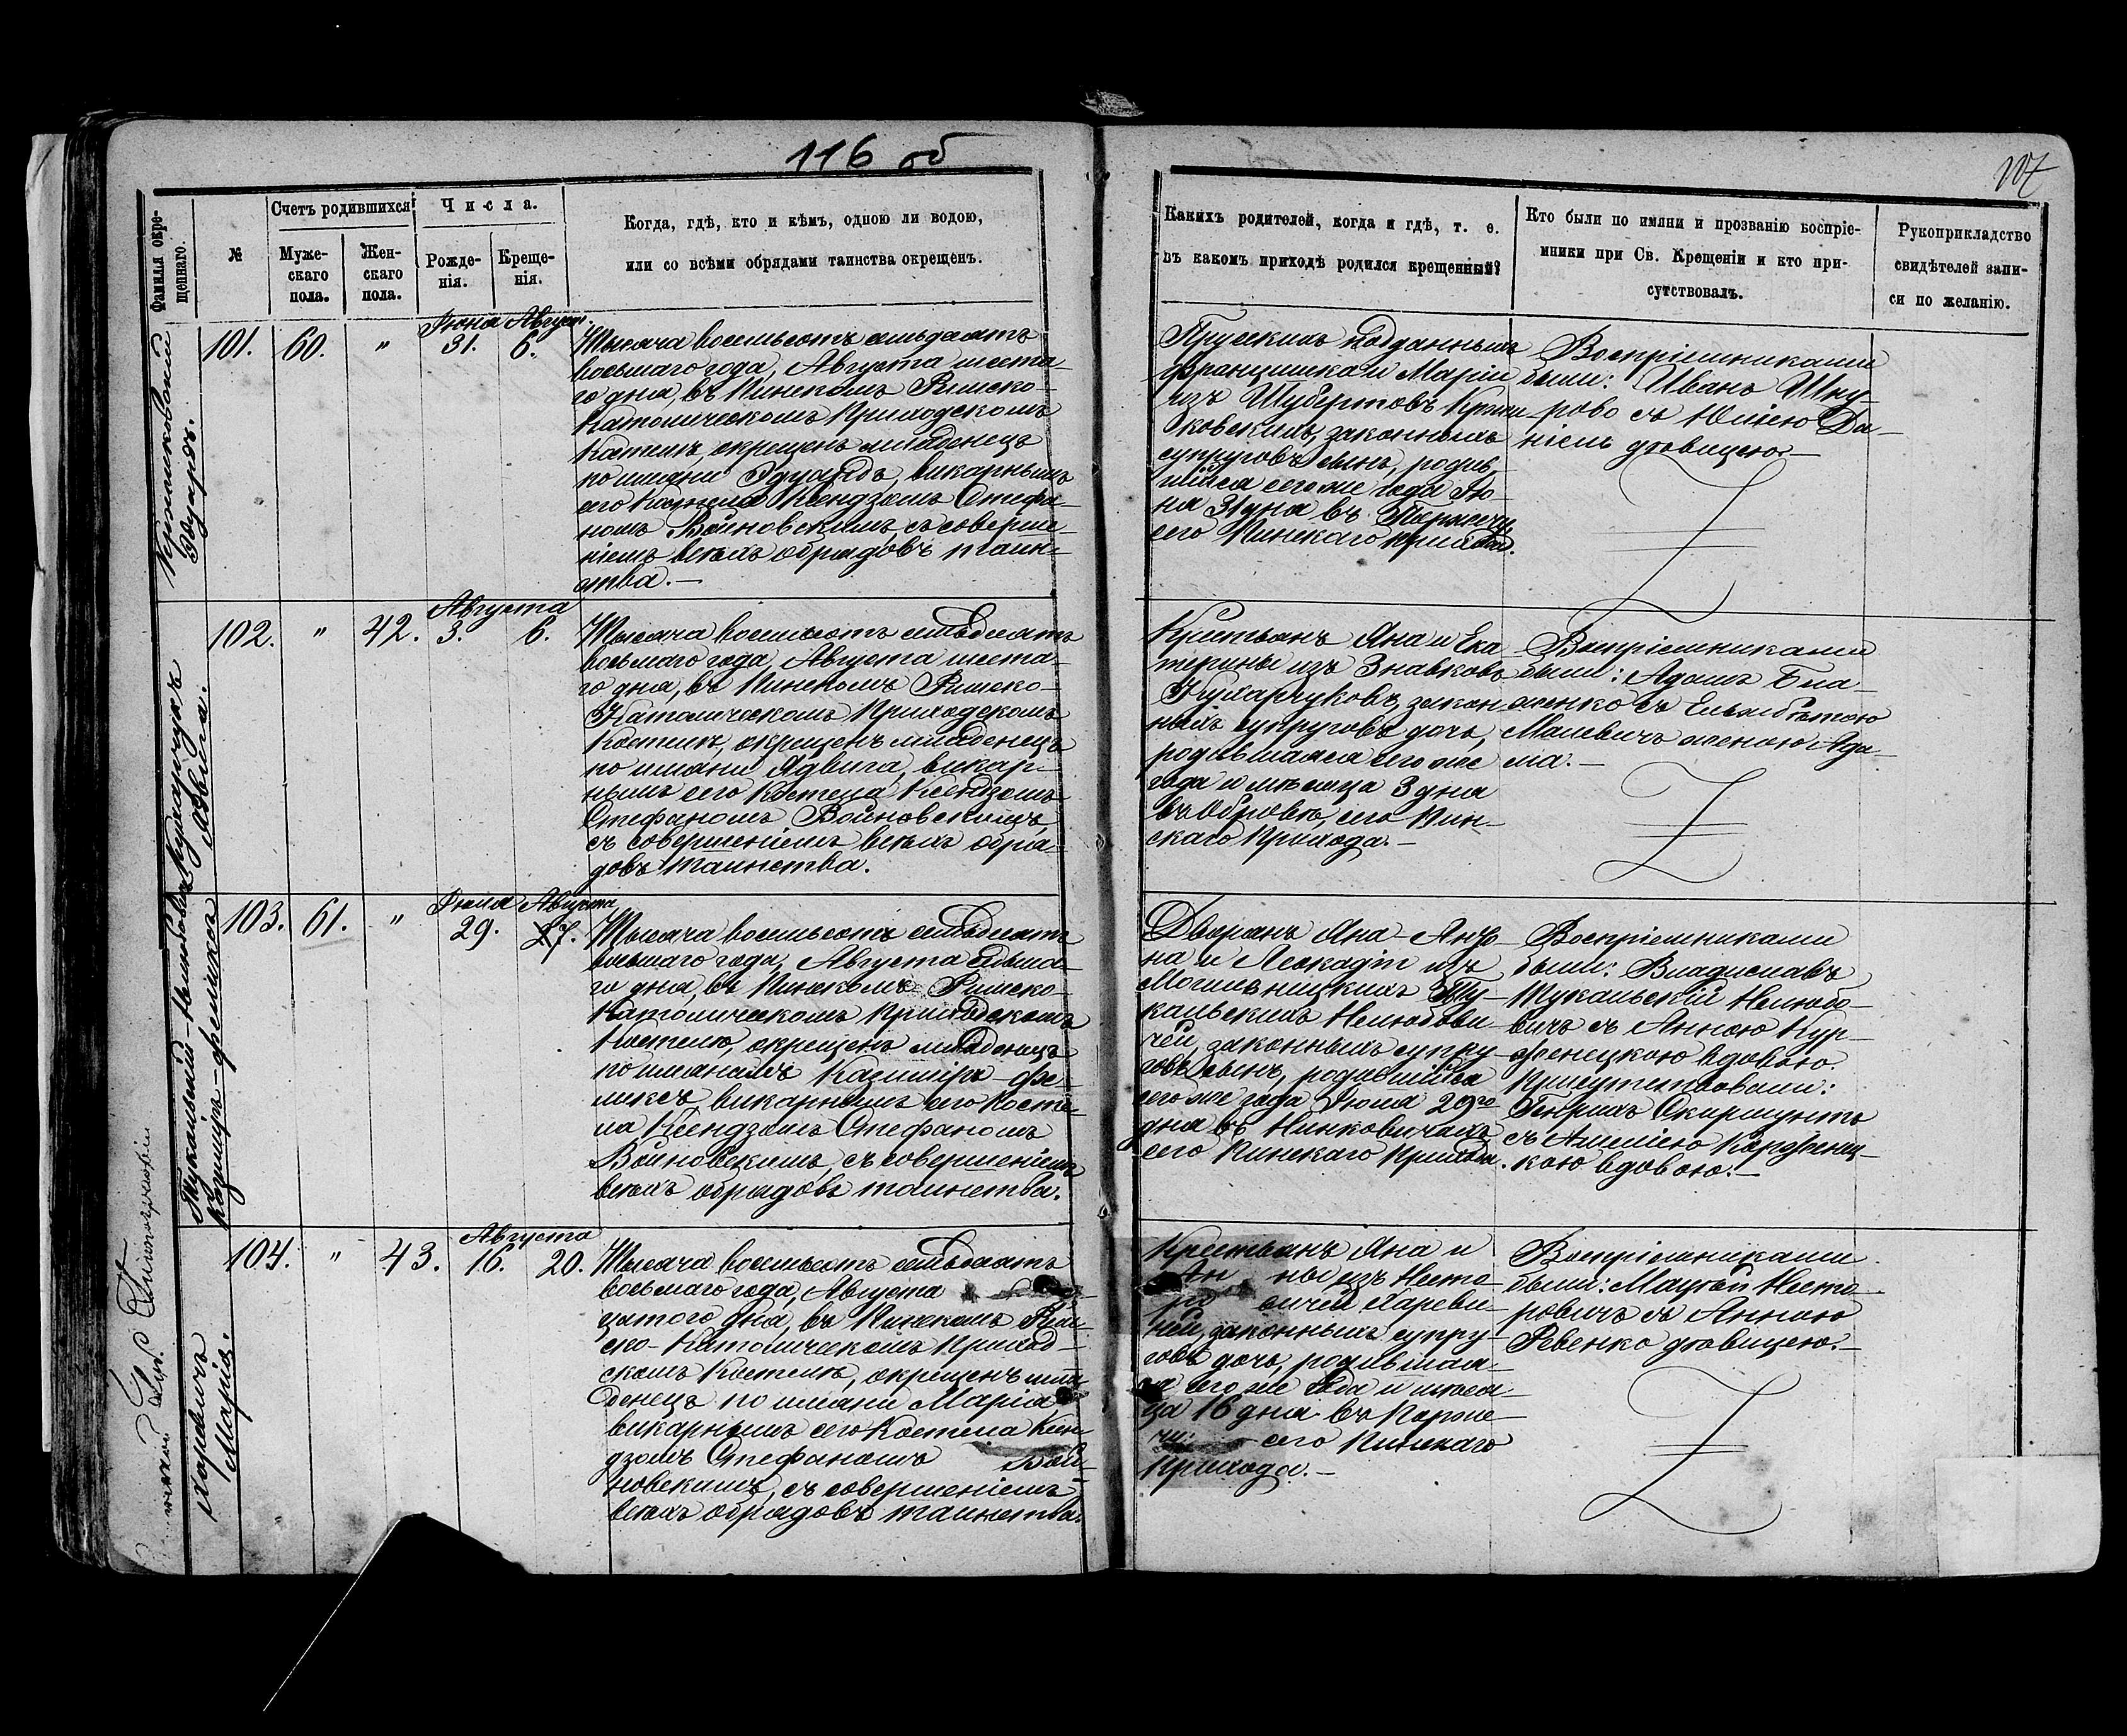 116 об
117
Фамилія окре-
щеннаго.
№
Счетъ родившихся
Муже-
скаго
пола.
Жен-
скаго
пола.
Числа.
Рожде-
нія.
Креще-
нія.
Когда, гдѣ, кто и кѣмъ, одною ли водою,
или со всѣми обрядами таинства окрещенъ.
Какихъ родителей, когда и гдѣ, т. е.
въ какомъ приходѣ родился крещенный?
Кто были по имяни и прозванію воспріе-
мники при Св. Крещеніи и кто при-
сутствовалъ.
Рукоприкладство
свидѣтелей запи-
си по желанію.
Эдуардъ.
101.
60.
"
Іюна Август.
31. 6.
Тысяча восемьсотъ семьдесятъ
восьмаго года, Августа шеста-
го дня, въ Пинскомъ Римско-
Католическомъ Приходскомъ
Костелѣ, окрещенъ младенецъ
по имяни Эдуардъ, викарнымъ
сего Костела Ксендзомъ Стефа-
номъ Войновскимъ, съ соверше-
ніемъ всѣхъ обрядовъ таин-
ства.—
Прусскихъ подданныхъ
Францишка и Маріи
изъ Шубертовъ
ковскихъ, законныхъ
супруговъ сынъ, родив-
шійся сего же года Ію-
на 31 дня въ
сего Пинскаго прихода.
Воспріемниками
были: Иванъ Шку-
рово съ Юліею Да-
ніель дѣвицею.—
Кухарчукъ
Ядвига.
102.
"
42.
Августа
3. 6.
Тысяча восемьсотъ семьдесятъ
восьмаго года, Августа шеста-
го дня, въ Пинскомъ Римско-
Католическомъ Приходскомъ
Костелѣ, окрещенъ младенецъ
по имяни Ядвига, викар-
нымъ сего Костела Ксендзомъ
Стефаномъ Войновскимъ,
съ совершеніемъ всѣхъ обря-
довъ таинства.
Крестьянъ Яна и Ека-
терины изъ Знавковъ
Кухарчуковъ, закон-
ныхъ супруговъ дочь,
родившаяся сего же
года и мѣсяца 3 дня
сего Пин-
скаго Прихода.—
Воспріемниками
были: Адамъ Бла-
женко съ Ельжбѣтою
Малевичъ женою Ада-
ма.—
Тукальскій-Нелюбовичъ
Казиміръ-Феликсъ
103.
61.
"
Іюля Августа
29. 7.
Тысяча восемьсотъ семьдесятъ
восьмаго года, Августа седьма-
го дня, въ Пинскомъ Римско-
Католическомъ Приходскомъ
Костелѣ, окрещенъ младенецъ
по имянамъ Казиміръ-Фе-
ликсъ, викарнымъ сего Косте-
ла Ксендзомъ Стефаномъ
Войновскимъ, съ совершеніемъ
всѣхъ обрядовъ таинства.
Дворянъ Яна-Анто-
на и Леокадіи изъ
Могильницкихъ Ту-
кальскихъ Нелюбови-
чей, законныхъ супру-
говъ сынъ, родившійся
сего же года Іюля 29го
дня въ Нинковичахъ
сего Пинскаго Прихода.
Воспріемниками
были: Владиславъ
Тукальскій Нелюбо-
вичъ съ Анною Кур-
женецкою вдовою.
Присутствовали:
Генрихъ Скирмунтъ
съ Амеліею Корженец-
кою вдовою.—
Харевичъ
Марія.
104.
"
43.
Августа
16. 20.
Тысяча восемьсотъ семьдесятъ
восьмаго года, Августа
цатого дня, въ Пинскомъ Рим-
ско-Католическомъ Приход-
скомъ Костелѣ, окрещенъ мла-
денецъ по имяни Марія
викарнымъ сего Костела Ксен-
дзомъ Стефаномъ Вой-
новскимъ, съ совершеніемъ
всѣхъ обрядовъ таинства.
Крестьянъ Яна и
Ан ны изъ Несто-
ро вичей Хареви-
чей, законныхъ супру-
говъ дочь, родившая-
ся сего же года и мѣся-
ца 16 дня въ
сего Пинскаго
Прихода.—
Воспріемниками
были: Матѳей Несто-
ровичъ съ Анною
Ревенко дѣвицею.—